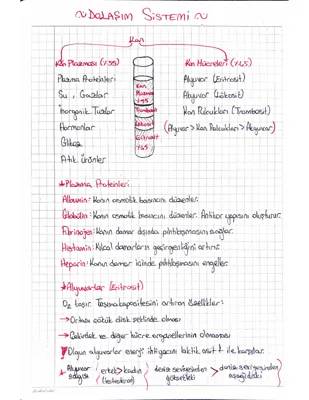 ~DOLAŞIM SİSTEMİ~
Kan
Kan Plazması (%55)
Kan Hücreleri (%45)
Plazma Proteinleri
Su, Gazlar
İnorganik Tuzlar
Hormonlar
Glikoz
Atık Ürünler
Kan
Plazması
%55
Trombosit
Lökosit
Eritrosit
%45
Alyuvar (Eritrosit)
Akyuvar (Lökosit)
Kan Pulcukları (Trombosit)
(Alyuvar > Kan Pulcukları > Akyuvar)
*Plazma Proteinleri:
Albumin: Kanın osmotik basıncını düzenler.
Globülin: Kanın osmotik basıncını düzenler. Antikor yapısını oluşturur.
Fibrinojen: Kanın damar dışında pıhtılaşmasını sağlar.
Histamin: Kılcal damarların geçirgenliğini artırır.
Heparin: Kanın damar içinde pıhtılaşmasını engeller.
*Alyuvarlar (Eritrosit)
O₂ taşır. Taşıma kapasitesini artıran özellikler:
→Ortası çökük disk şeklinde olması
→Çekirdek ve diğer hücre organellerinin olmaması
Olgun alyuvarlar enerji ihtiyacını laktik asit f. ile karşılar.
Alyuvar
sayısı
erkek>kadın
(testosteron)
deniz seviyesinden
yüksekteki
>
deniz seviyesinden
aşağıdaki